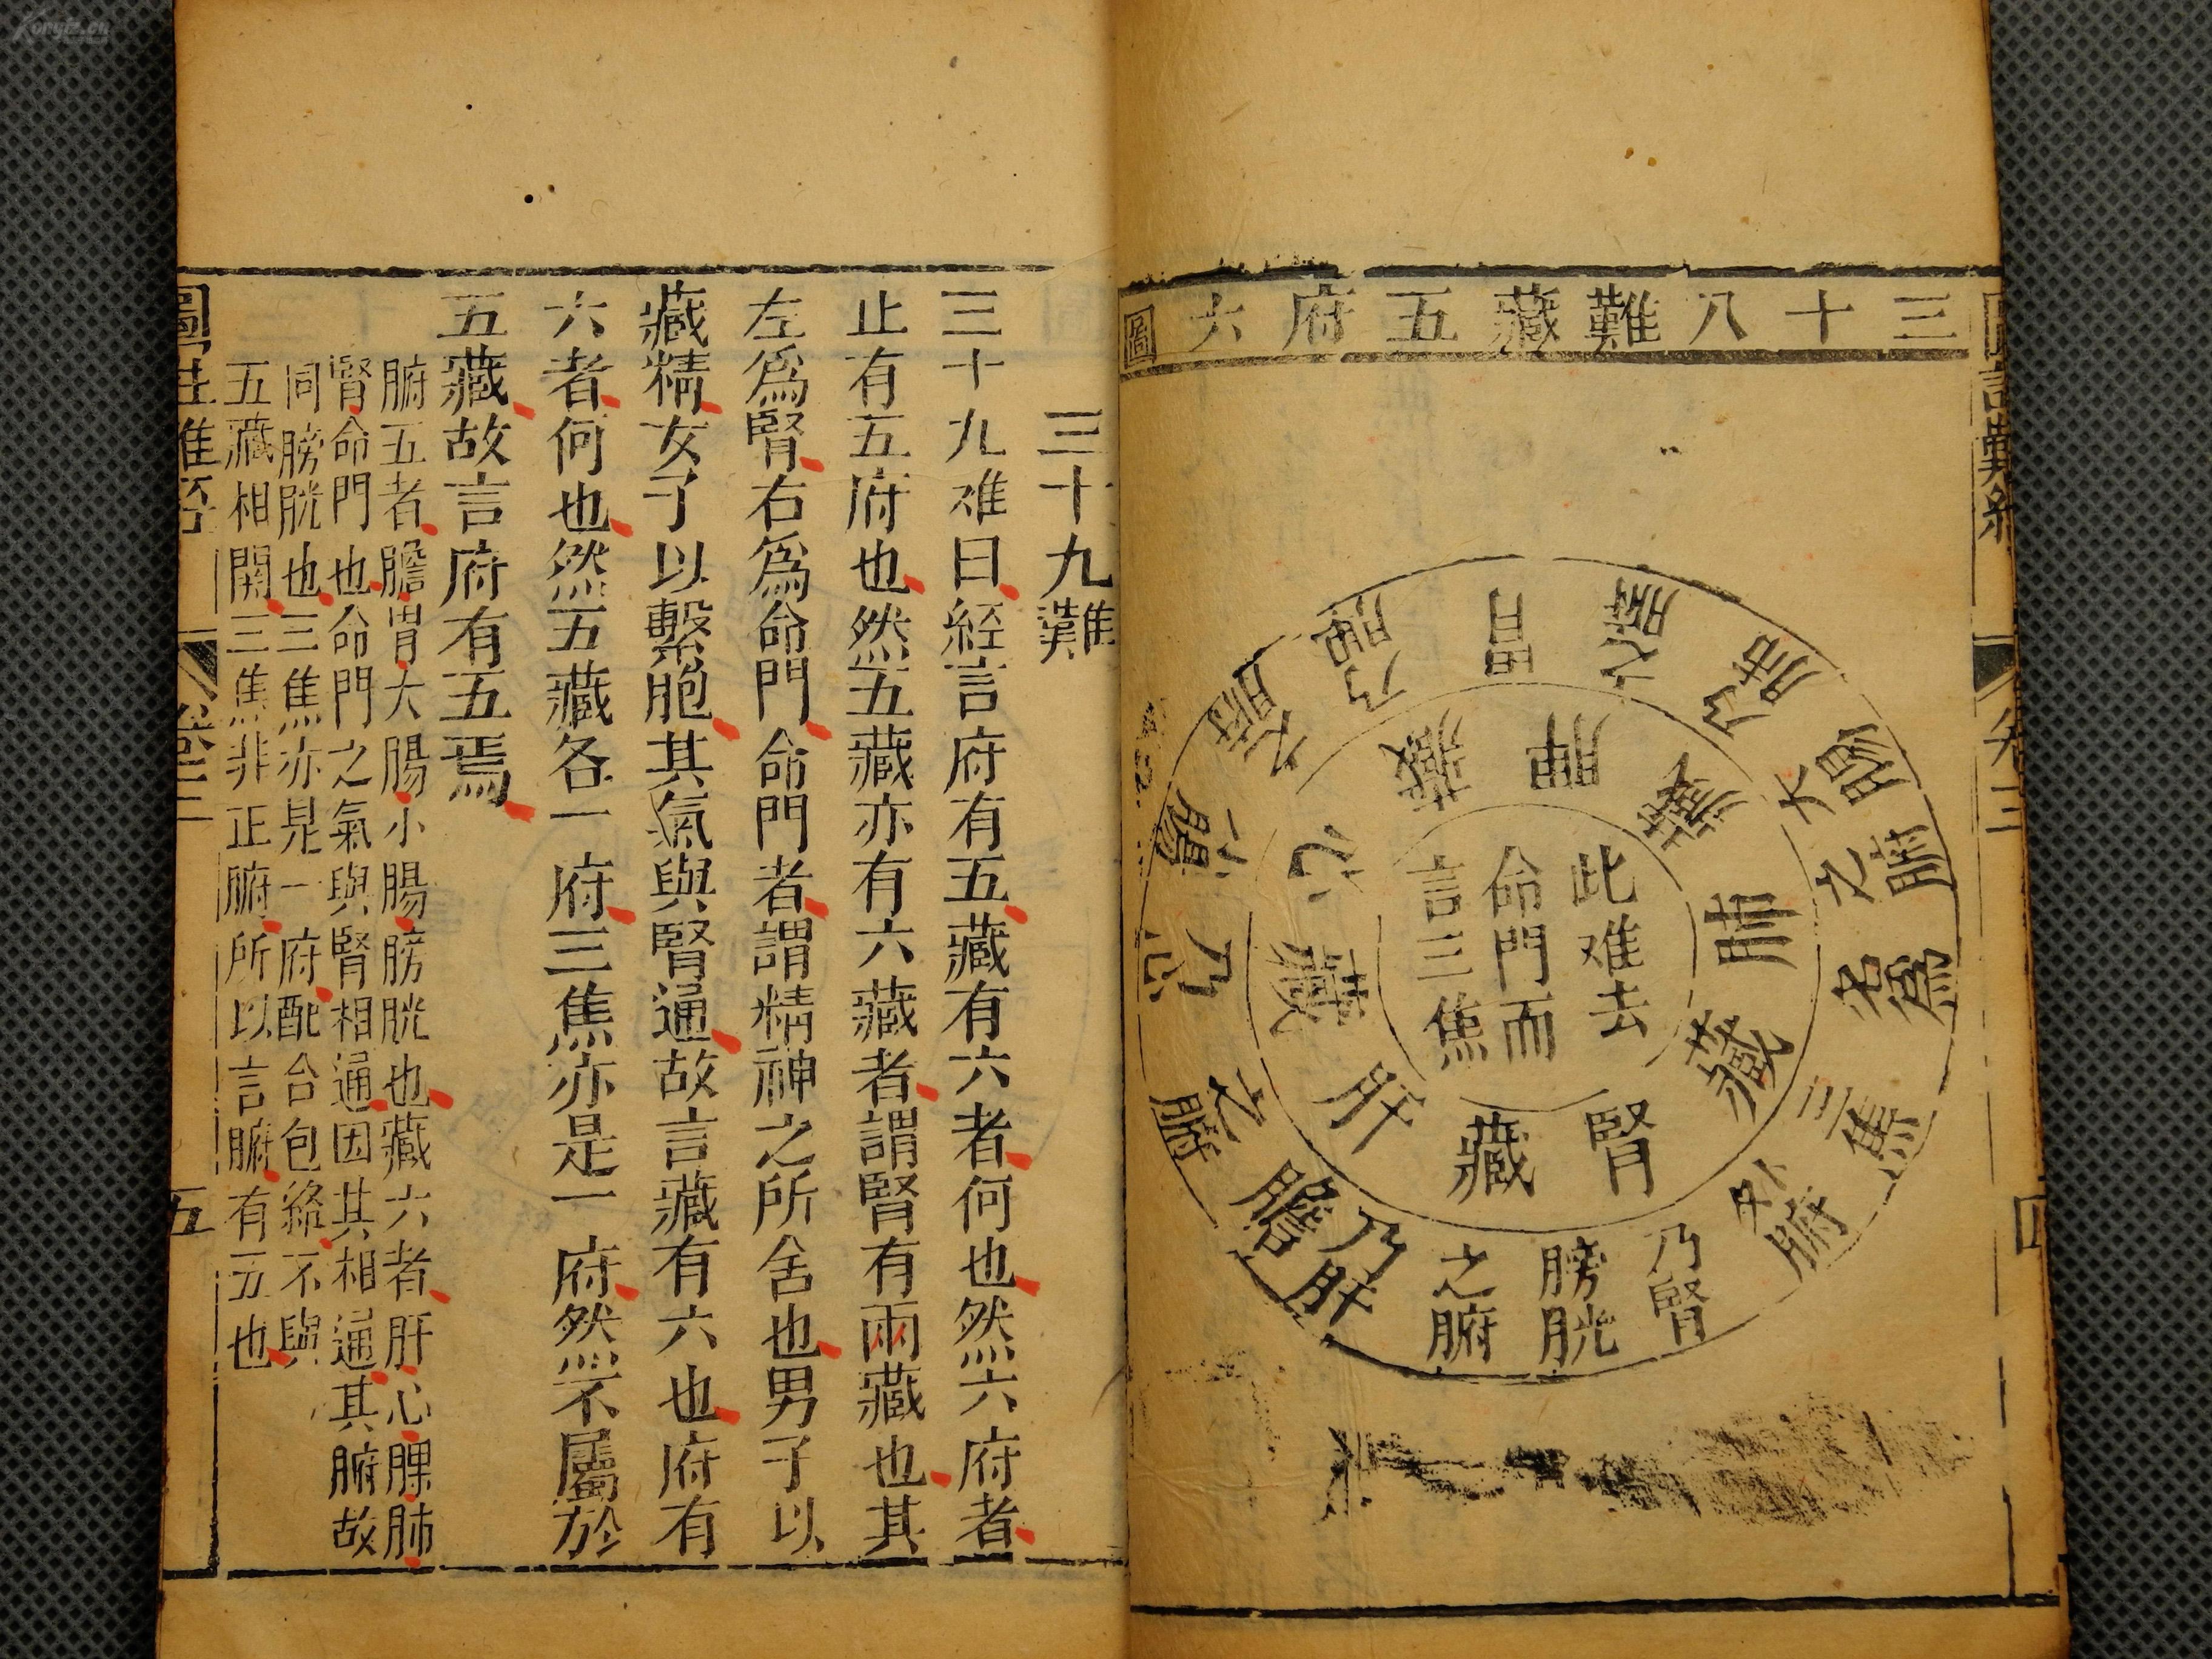 三十八難藏五府六圖
此难去
命門而
言三焦
腎藏
肝藏
心藏
脾藏
肺藏
乃腎
膀胱
之腑
乃肝
膽
之腑
乃心
小腸
之腑
乃脾
胃
之腑
乃肺
大腸
之腑
名為
三焦
外腑
卷三
四
三十九難
三十九难曰經言府有五藏有六者何也然六府者
止有五府也然五藏亦有六藏者謂腎有兩藏也其
左爲腎右爲命門命門者謂精神之所舍也男子以
藏精女子以繫胞其氣與腎通故言藏有六也府有
六者何也然五藏各一府三焦亦是一府然不屬於
五藏故言府有五焉
腑五者膽胃大腸小腸膀胱也藏六者肝心脾肺
腎命門也命門之氣與腎相通因其相通其腑故
同膀胱也三焦亦是一府配合包絡不與
五藏相關三焦非正腑所以言腑有五也
圖註难經
卷三
五